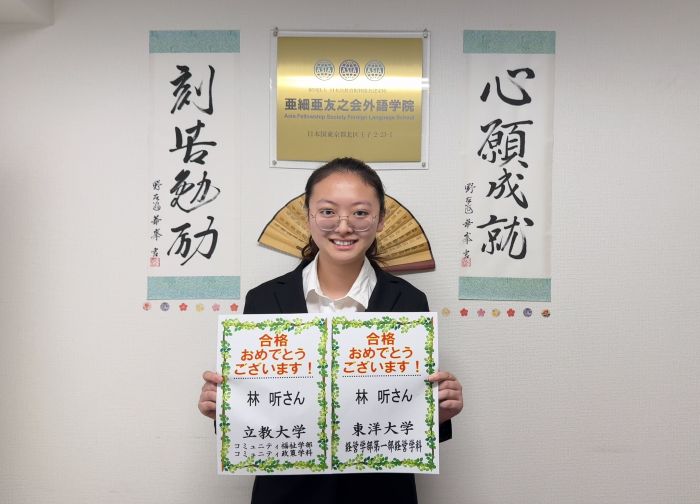 刻苦勉励
ASIA
ASIA
ASIA
亜細亜友之会外語学院
Asia Fellowship Society Foreign Language School
日本国東京都北区王子2-23-1
心願成就
合格
おめでとう
ございます！
林 听さん
立教大学
コミュニティ福祉学部
コミュニティ政策学科
合格
おめでとう
ございます！
林 听さん
東洋大学
経営学部第一部経営学科